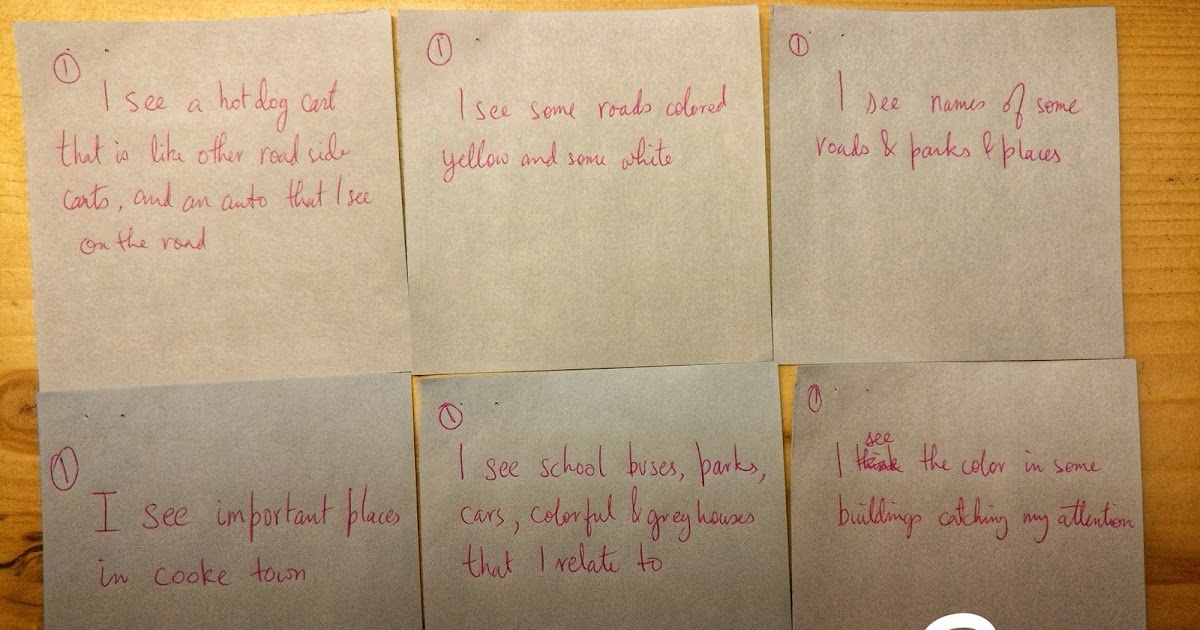 ①
I see a hotdog cart
that is like other road side
carts, and an auto that I see
on the road
①
I see some roads colored
yellow and some white
①
I see names of some
roads & parks & places
①
I see important places
in cooke town
①
I see school buses, parks,
cars, colorful & grey houses
that I relate to
①
see
I think the color in some
buildings catching my attention